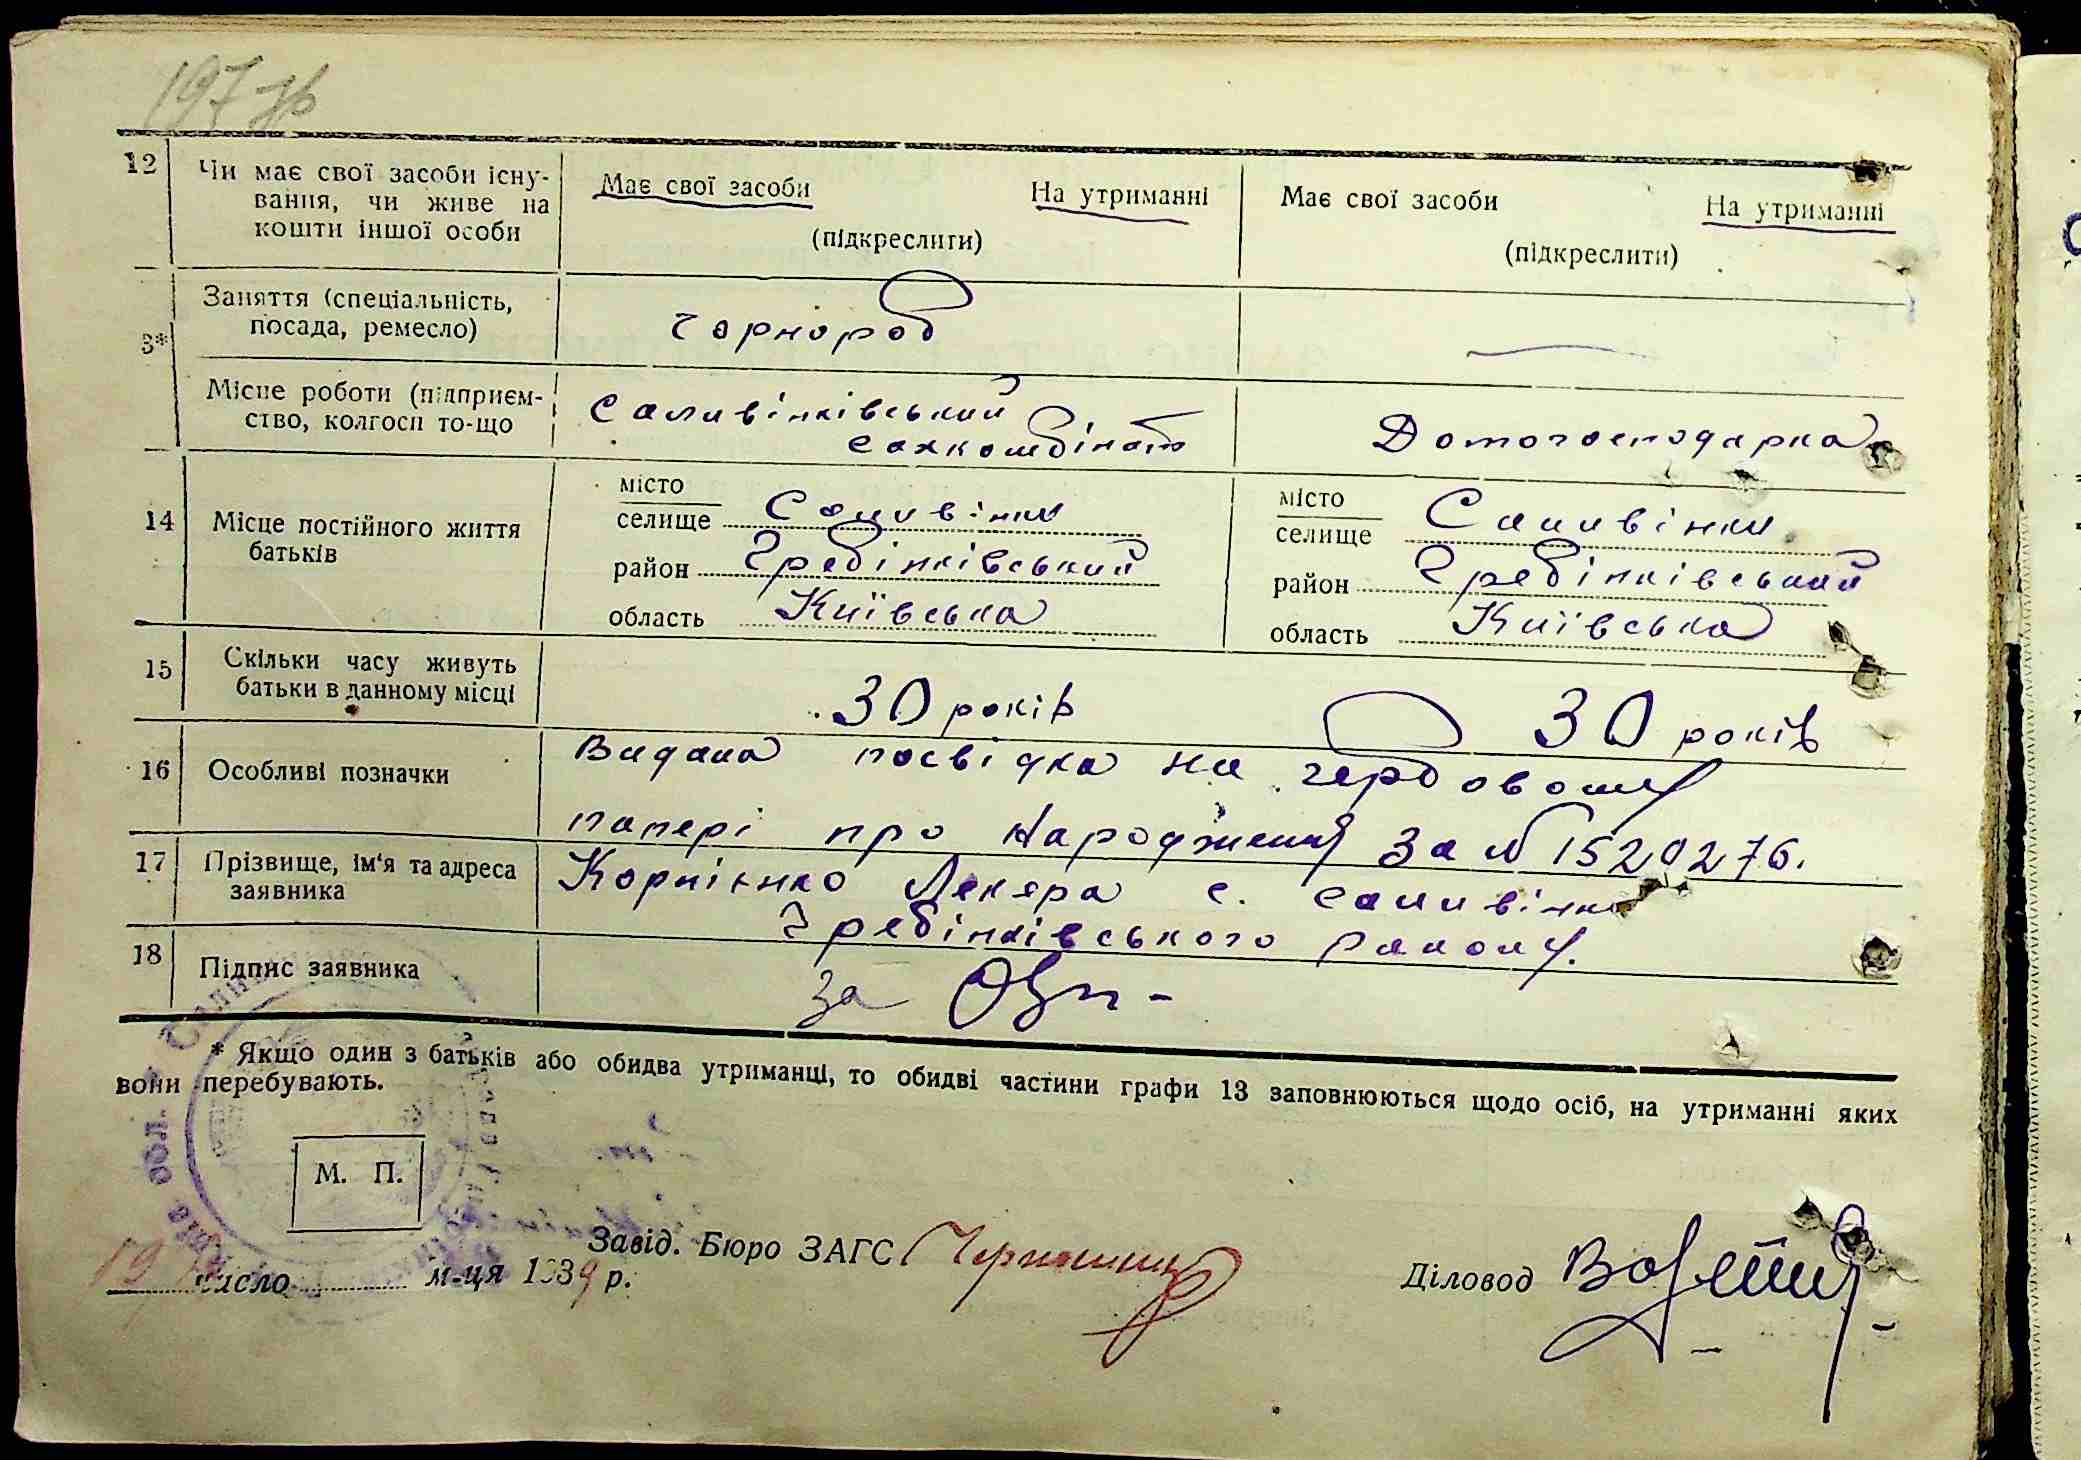 197 зв
12 Чи має свої засоби існу-
вання, чи живе на
кошти іншої особи
Має свої засоби На утриманні
(підкреслити)
Має свої засоби На утриманні
(підкреслити)
3*
Заняття (спеціальність,
посада, ремесло)
Чорнороб
Місце роботи (підприєм-
ство, колгосп то-що
Саливінківський
сахкомбінат
Домогосподарка
14 Місце постійного життя
батьків
місто
селище Саливінки
район Гребінківський
область Київська
місто
селище Саливінки
район Гребінківський
область Київська
15 Скільки часу живуть
батьки в данному місці
30 років
30 років
16 Особливі позначки
Видана посвідка на гербовому
папері про народження за № 1520276.
17 Прізвище, ім'я та адреса
заявника
Корнієнко с. Саливінки
Гребінківського району.
18 Підпис заявника
за
* Якщо один з батьків або обидва утриманці, то обидві частини графи 13 заповнюються щодо осіб, на утриманні яких
вони перебувають.
М. П.
19 число м-ця 1939 р.
Завід. Бюро ЗАГС
Діловод